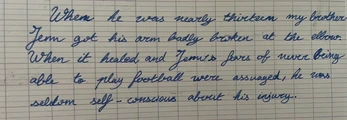 When he was nearly thirteen my brother
Jem got his arm badly broken at the elbow.
When it healed and Jem's fears of never being
able to play football were assuaged, he was
seldom self-conscious about his injury.